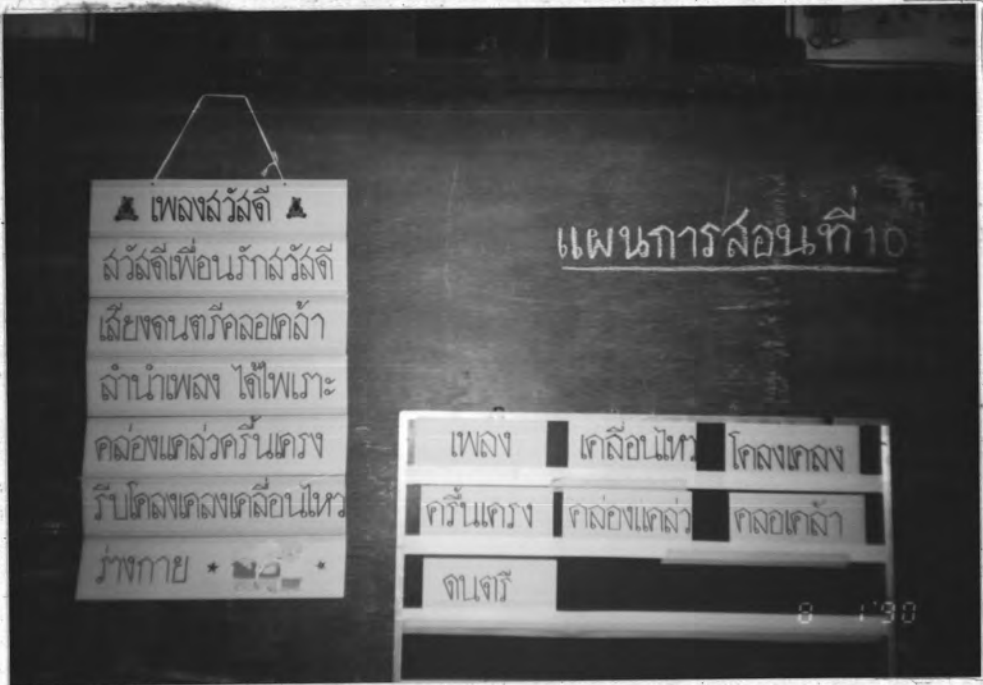 เพลงสวัสดี
สวัสดีเพื่อนรักสวัสดี
เสียงดนตรีคลอเคล้า
ลำนำเพลง ได้ไพเราะ
คล่องแคล่วครื้นเครง
รีบโคลงเคลงเคลื่อนไหว
ร่างกาย
แผนการสอนที่ 10
เพลง เคลื่อนไหว โคลงเคลง
ครื้นเครง คล่องแคล่ว คลอเคล้า
ดนตรี
8 1'90